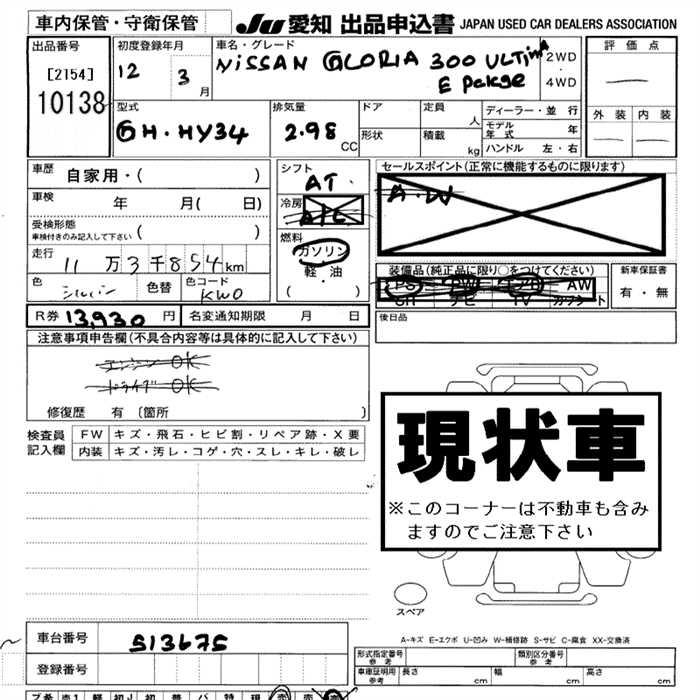 車内保管・守衛保管
JU 愛知 出品申込書 JAPAN USED CAR DEALERS ASSOCIATION
出品番号 初度登録年月 車名・グレード
[2154] 12 3月 NISSAN GLORIA 300 ULTima 2WD
10138 E Pakge 4WD
評価点
外装 内装
型式 排気量 ドア 定員 人 ディーラー・並行
GH・HY34 2.98 CC 形状 積載 kg モデル年式 年
ハンドル 左・右
車歴 自家用・( )
車検 年 月( 日)
受検形態
車検付きのみ記入して下さい ( )
走行 11万3千854km
色 シルバー 色替 色コード KW0
シフト AT
冷房 A/C
燃料 ガソリン
軽・油
( ・ )
セールスポイント(正常に機能するものに限ります)
A・W
装備品(純正品に限り○をつけてください) 新車保証書
PS PW エアB AW 有・無
S/R ナビ TV カワシート
後日品
R券 13,930円 名変通知期限 月 日
注意事項申告欄(不具合内容等は具体的に記入して下さい)
エンジン OK
ドライブ OK
修復歴 有〔箇所 〕
検査員 FW キズ・飛石・ヒビ割・リペア跡・X要
記入欄 内装 キズ・汚レ・コゲ・穴・スレ・キレ・破レ
現状車
※このコーナーは不動車も含み
ますのでご注意下さい
スペア
A-キズ E-エクボ U-凹み W-補修跡 S-サビ C-腐食 XX-交換済
車台番号 513675
登録番号
形式指定番号 参考 類別区分番号 参考
車庫証明用 参考 長さ cm 幅 cm 高さ cm